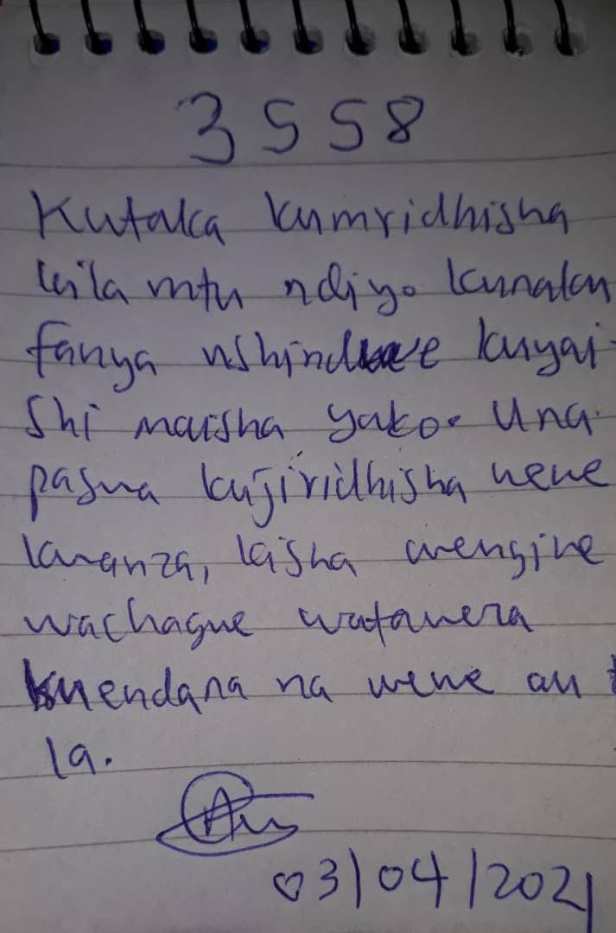 3558
Kutaka kumridhisha
kila mtu ndiyo kunaku
fanya ushindwe kuyai-
shi maisha yako. Una
paswa kujiridhisha wewe
kwanza, kisha wengine
wachague wataweza
kuendana na wewe au
la.
03/04/2021